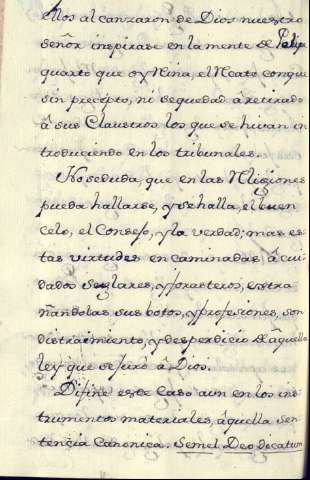 ellos alcanzaron de Dios nuestro
señor inspirase en la mente de Felipe
quarto que oy Reina, el Recato con que
sin precepto, ni sequedad â retirado
â sus Claustros los que se hivan in
troduciendo en los tribunales.
No se duda, que en las Religiones
pueda hallarse, y se halla, el buen
celo, el Consejo, y la verdad; mas es
tas virtudes en caminadas, â cui
dados seglares, y forasteros, extra
ñandolas sus botos, y profesiones, son
distraimiento, y desperdicio de âquella
ley que se juro â Dios.
Difine este Caso aun en los ins
trumentos materiales, âquella sen
tencia Canonica. Semel Deo dicatum